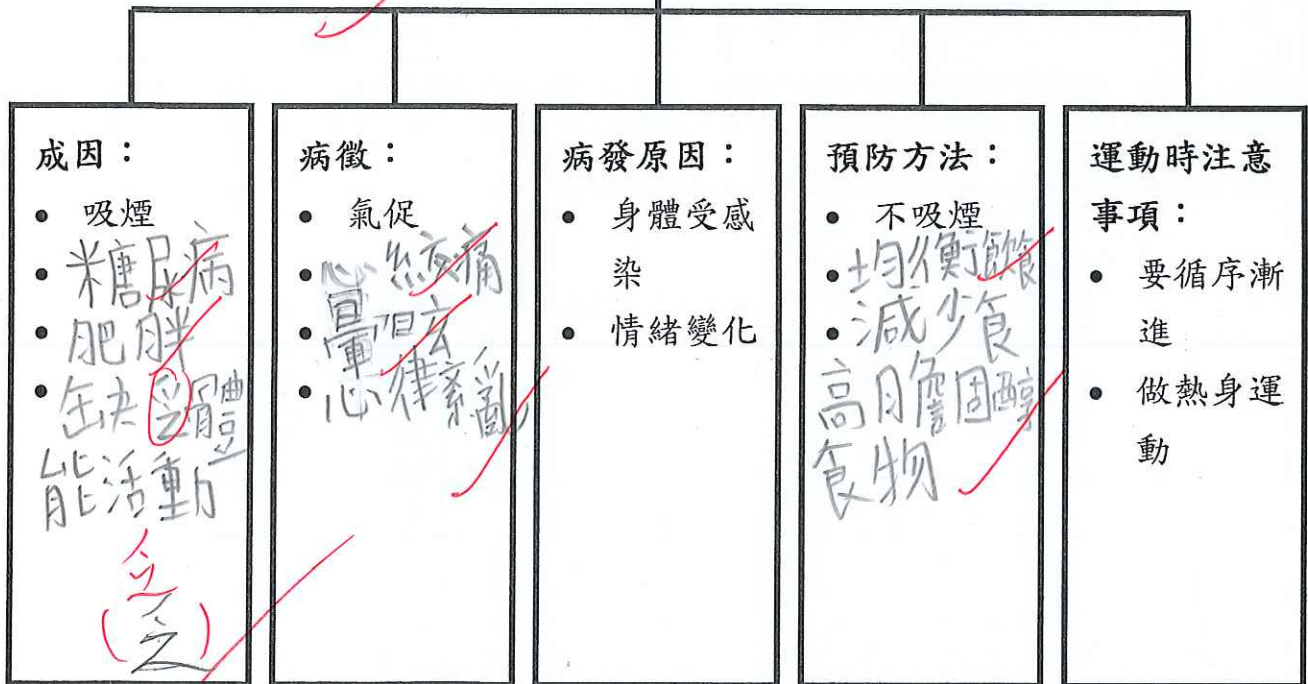 成因：
• 吸煙
• 糖尿病
• 肥胖
• 缺乏體
能活動
乏
(乏)
病徵：
• 氣促
• 心絞痛
• 暈眩
• 心律紊亂
病發原因：
• 身體受感
染
• 情緒變化
預防方法：
• 不吸煙
• 均衡飲食
• 減少食
高膽固醇
食物
運動時注意
事項：
• 要循序漸
進
• 做熱身運
動